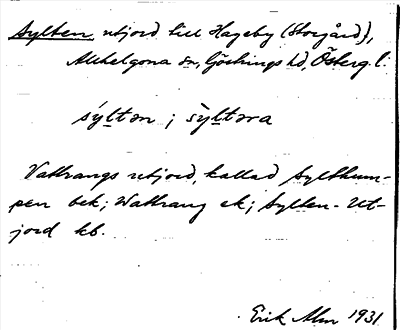 Sylten utjord till Hageby (Storgård),
Allhelgona sn, Göstrings hd, Österg. l.
sy̱lton ; sy̱ltora
Vattrangs utjord, kallad Sylthum-
pen bek; Wattrang ek; Sylten-Ut-
jord kb.
Erik Alm 1931